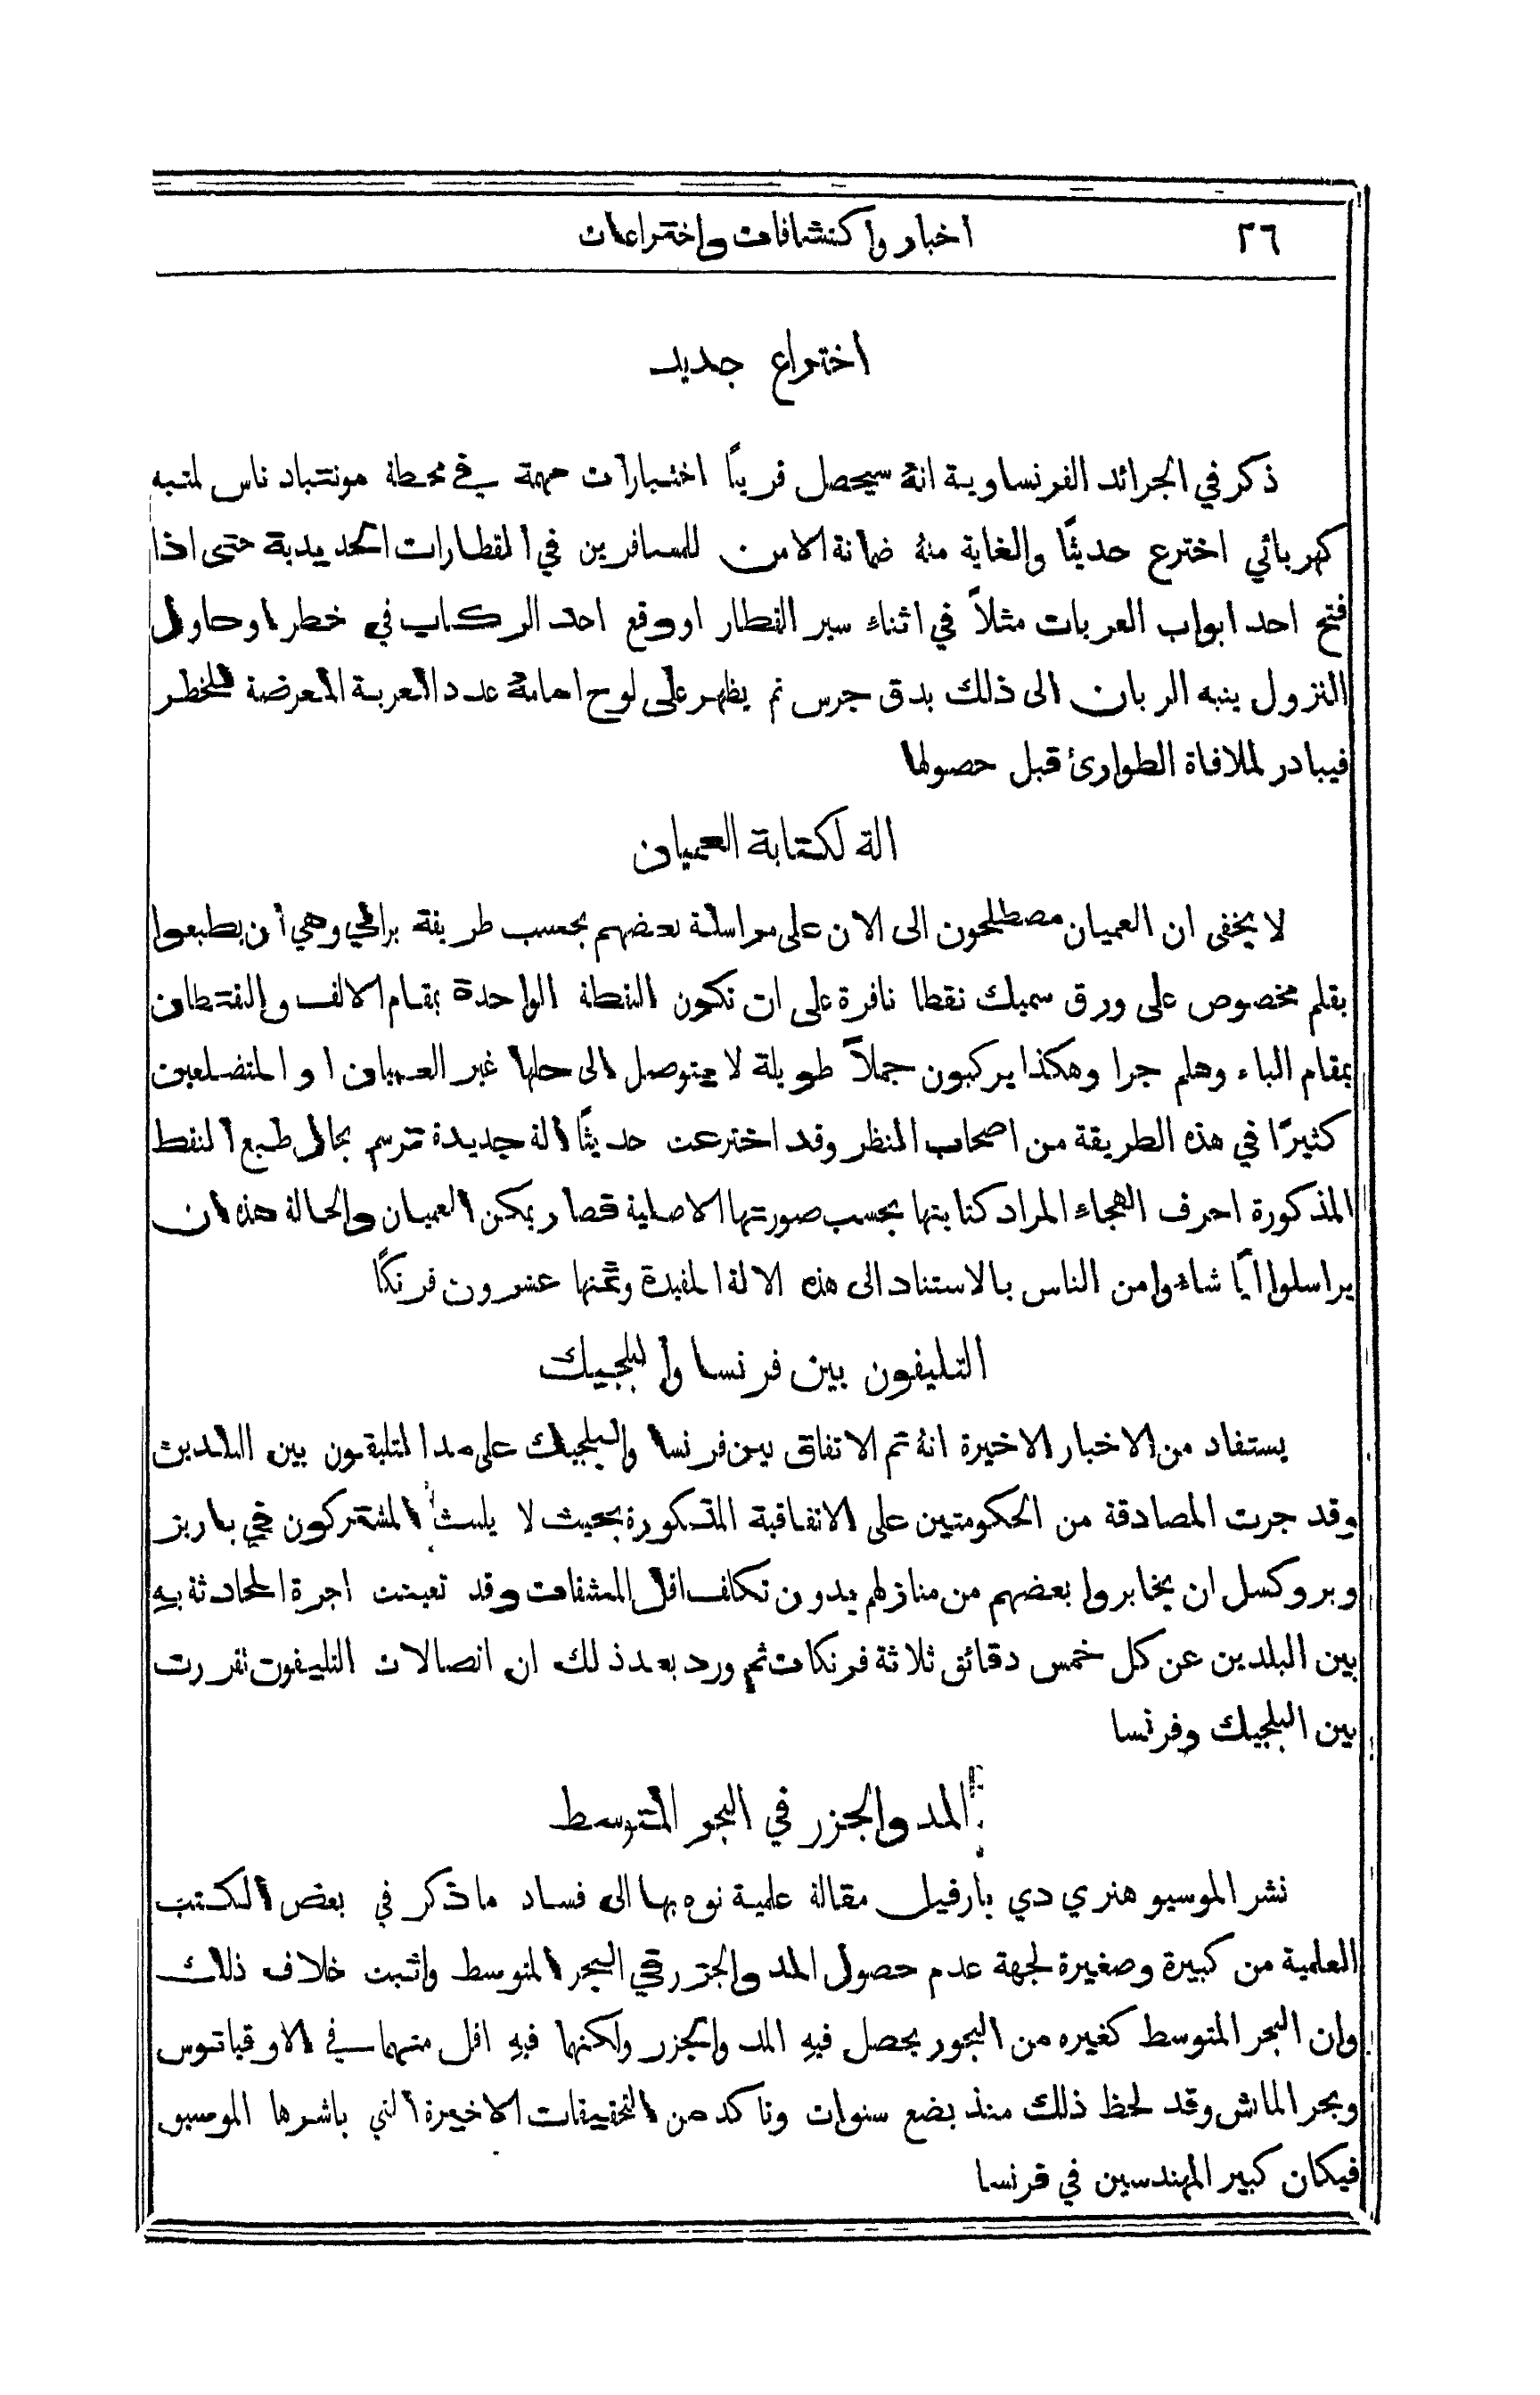 ٢٦
اخبار واكتشافات واختراعات
اختراع جديد
ذكر في الجرائد الفرنساوية انهُ سيحصل قريبًا اختبارات مهمة في محطة مونتباد ناس لمنبه
كهربائي اخترع حديثًا والغاية منهُ ضمانة الامن للمسافرين في القطارات الحديدية حتى اذا
فتح احد ابواب العربات مثلاً في اثناء سير القطار او وقع احد الركاب في خطر او حاول
النزول ينبه الربان الى ذلك بدق جرس ثم يظهر على لوح امامهُ عدد العربة المعرضة للخطر
فيبادر لملافاة الطوارئ قبل حصولها
الة لكتابة العميان
لا يخفى ان العميان مصطلحون الى الان على مراسلة بعضهم بحسب طريقة براي وهي أن يطبعوا
بقلم مخصوص على ورق سميك نقطا نافرة على ان تكون النقطة الواحدة بمقام الالف والنقتطان
بمقام الباء وهلم جرا وهكذا يركبون جملاً طويلة لا يتوصل الى حلها غير العميان او المتضلعين
كثيرًا في هذه الطريقة من اصحاب النظر وقد اخترعت حديثًا الة جديدة ترسم بحال طبع النقط
المذكورة احرف الهجاء المراد كتابتها بحسب صورتها الاصلية فصار يمكن العميان والحالة هذه ان
يراسلوا ايًا شاءوا من الناس بالاستناد الى هذه الالة المفيدة وثمنها عشرون فرنكًا
التليفون بين فرنسا والبلجيك
يستفاد من الاخبار الاخيرة انهُ تم الاتفاق بين فرنسا والبلجيك على مد التليفون بين البلدين
وقد جرت المصادقة من الحكومتين على الاتفاقية المذكورة بحيث لا يلبث المشتركون في باريز
وبروكسل ان يخابروا بعضهم من منازلهم بدون تكلف اقل المشقات وقد تعينت اجرة المحادثة بهِ
بين البلدين عن كل خمس دقائق ثلاثة فرنكات ثم ورد بعد ذلك ان اتصالات التليفون تقررت
بين البلجيك وفرنسا
المد والجزر في البحر المتوسط
نشر الموسيو هنري دي بارفيل مقالة علمية نوه بها الى فساد ما ذكر في بعض الكتب
العلمية من كبيرة وصغيرة لجهة عدم حصول المد والجزر في البحر المتوسط واثبت خلاف ذلك
وان البحر المتوسط كغيره من البحور يحصل فيهِ المد والجزر ولكنها فيهِ اقل منهما في الاوقيانوس
وبحر المانش وقد لحظ ذلك منذ بضع سنوات وتاكد من التحقيقات الاخيرة التي باشرها الموسيو
فيكان كبير المهندسين في فرنسا